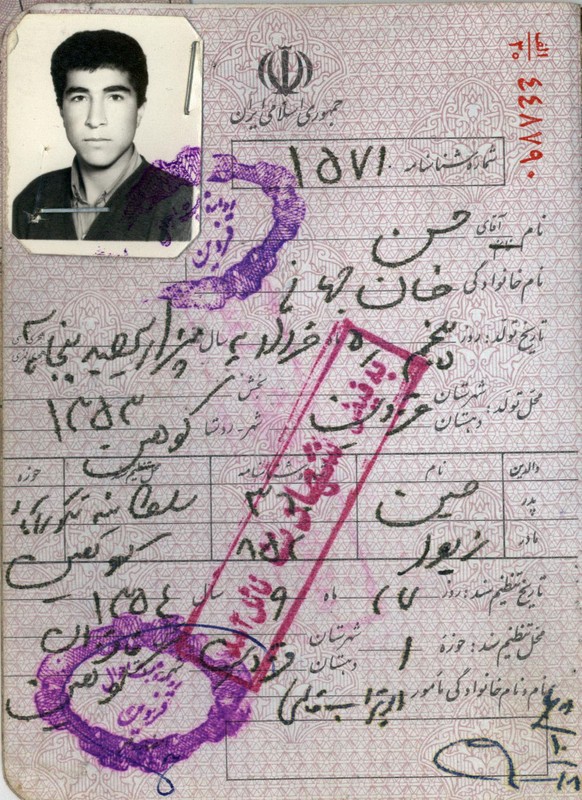 الف
۳۰ ۴۴۸۷۹۰
جمهوری اسلامی ایران
شماره شناسنامه ۱۵۷۱
نام آقای حسن
نام خانوادگی خان جهانی
تاریخ تولد: روز پنجم ماه خرداد سال هزار سیصد پنجاه
محل تولد: شهرستان قزوین بخش ۱۳۵۳
دهستان شهر-روستا کوهین
والدین نام شماره شناسنامه محل تنظیم سند حوزه
پدر حسین
مادر زیور ۸۵۲ کوهین
تاریخ تنظیم سند: روز ۱۷ ماه ۹ سال ۱۳۵۴
محل تنظیم سند: حوزهٔ ۱ شهرستان قزوین
دهستان کوهین
نام و نام خانوادگی مأمور
به فیض شهادت نائل آمد
قزوین
قزوین